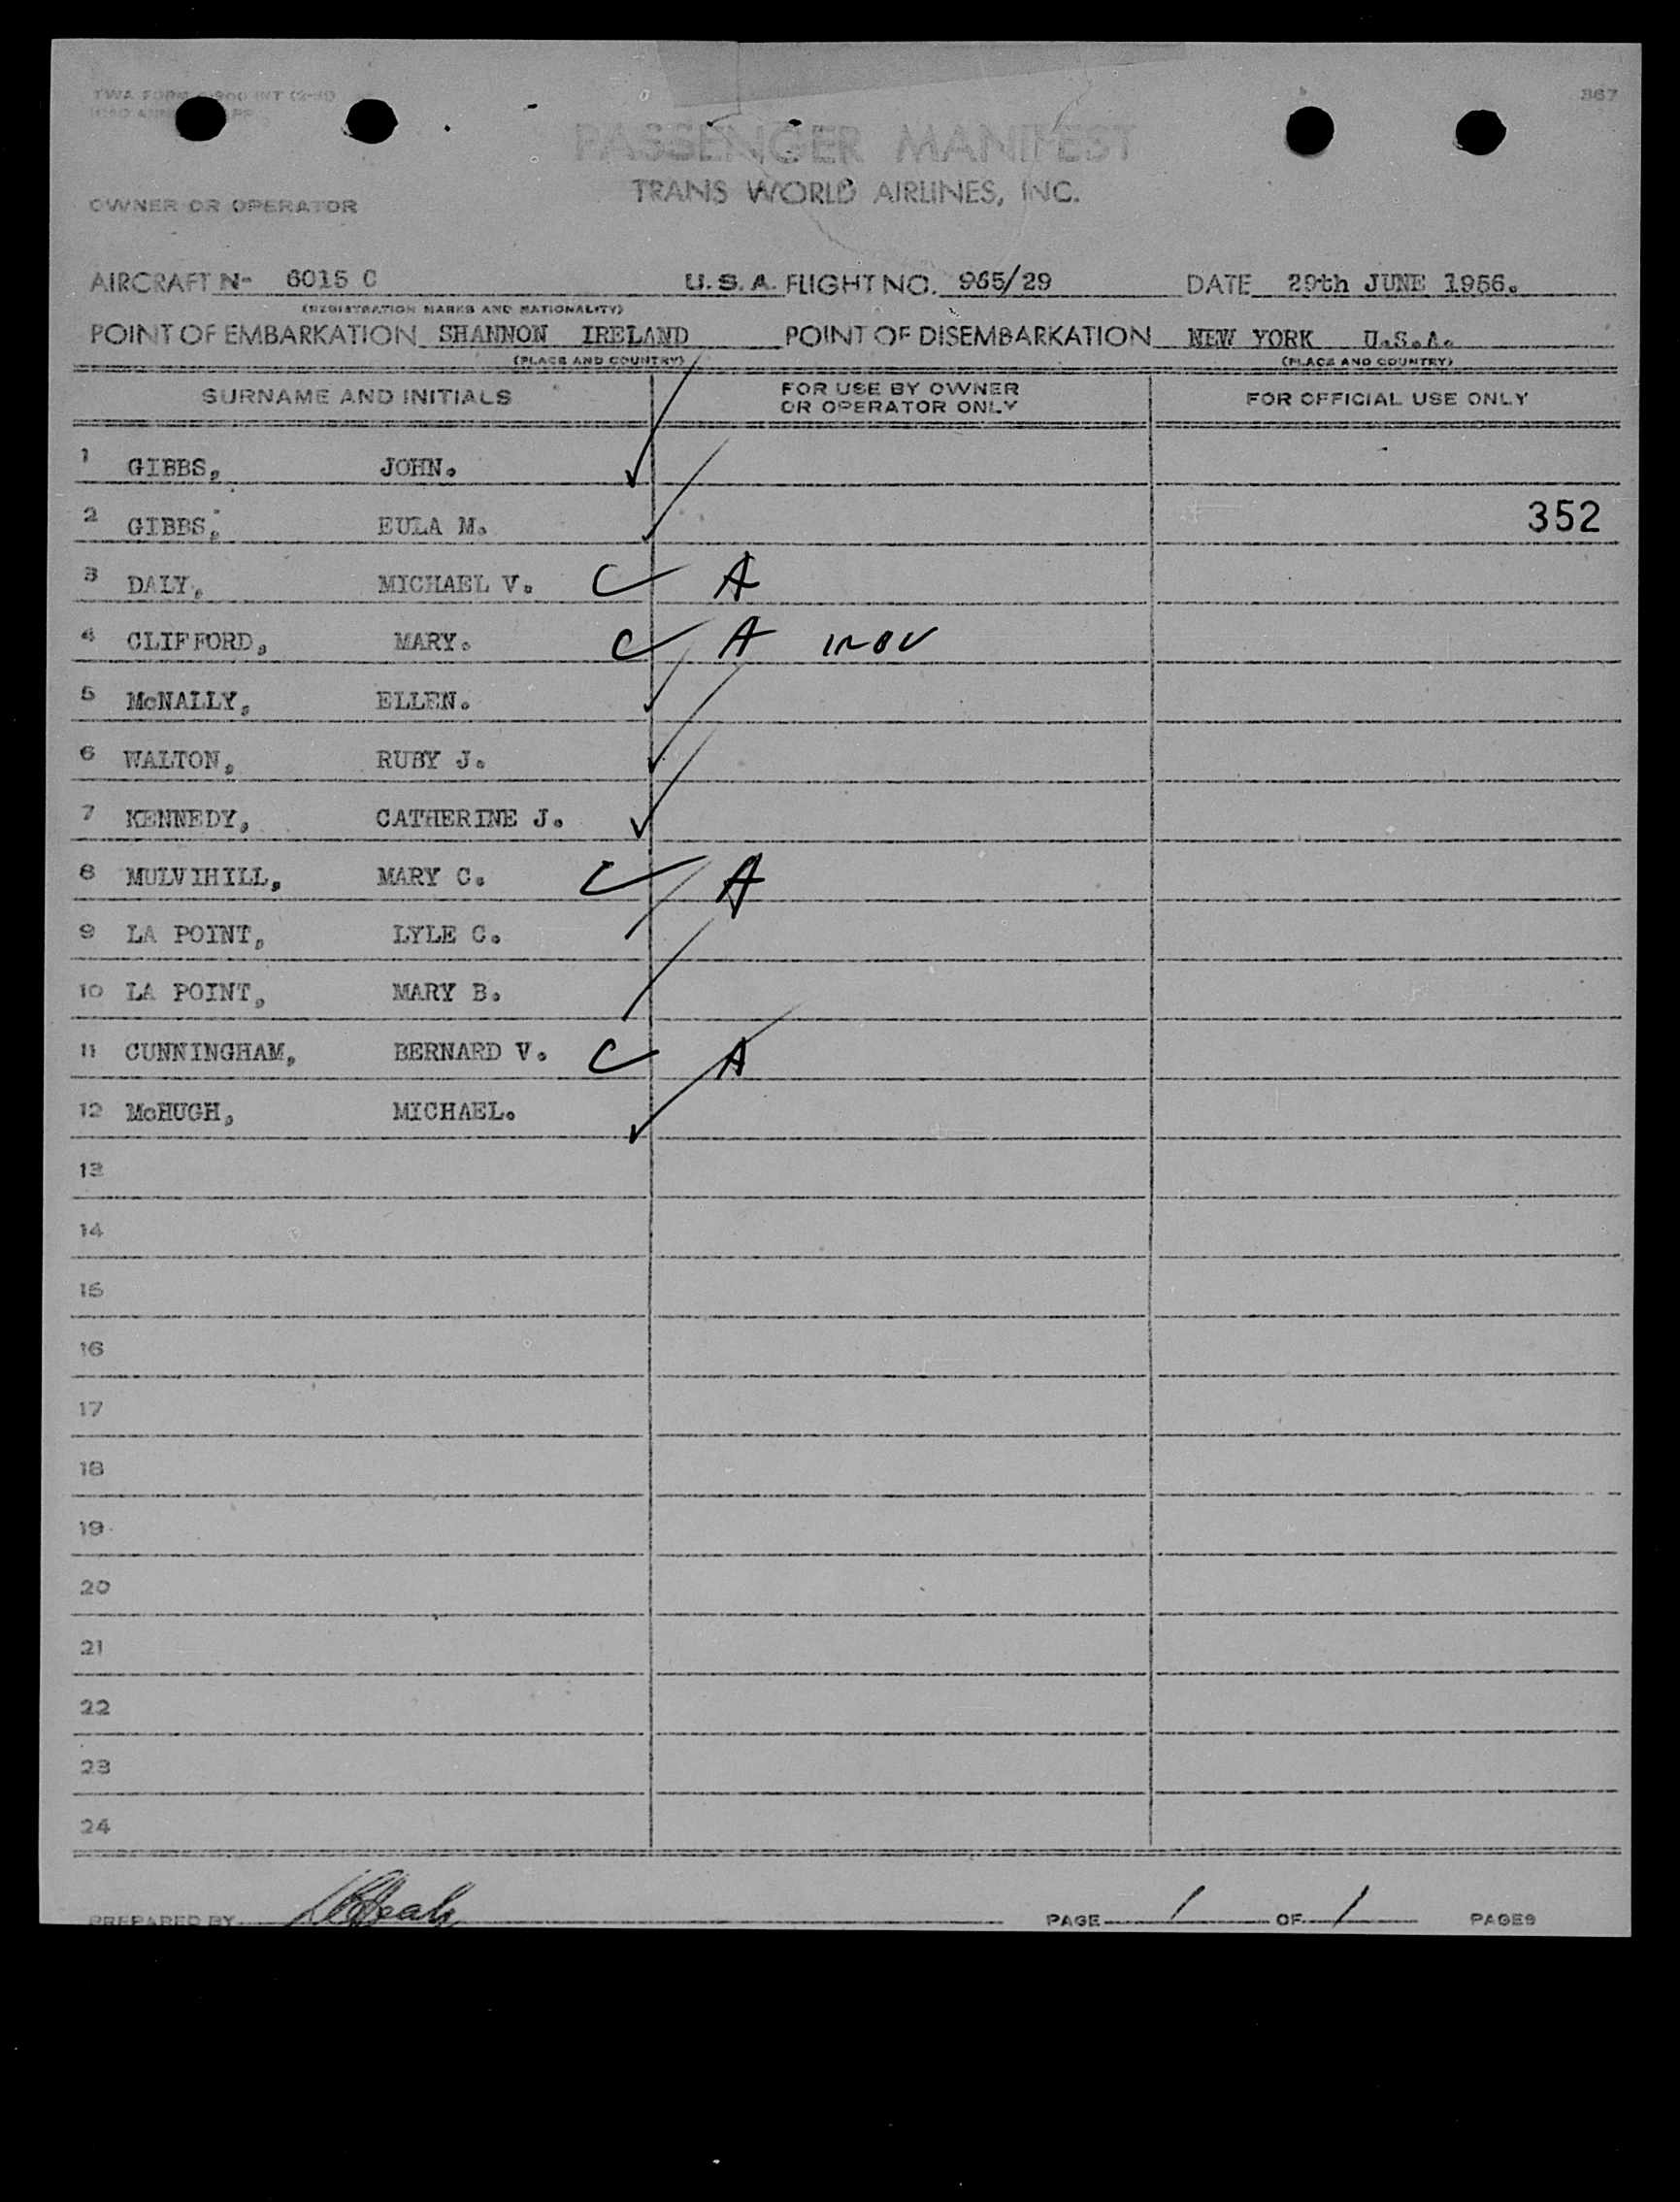 367
PASSENGER MANIFEST
TRANS WORLD AIRLINES, INC.
OWNER OR OPERATOR
AIRCRAFT N- 6015 C U.S.A. FLIGHT NO. 965/29 DATE 29th JUNE 1956.
(REGISTRATION MARKS AND NATIONALITY)
POINT OF EMBARKATION SHANNON IRELAND POINT OF DISEMBARKATION NEW YORK U.S.A.
(PLACE AND COUNTRY) (PLACE AND COUNTRY)
SURNAME AND INITIALS FOR USE BY OWNER OR OPERATOR ONLY FOR OFFICIAL USE ONLY
1 GIBBS, JOHN.
2 GIBBS, EULA M. 352
3 DALY, MICHAEL V. C A
4 CLIFFORD, MARY. C A
5 McNALLY, ELLEN.
6 WALTON, RUBY J.
7 KENNEDY, CATHERINE J.
8 MULVIHILL, MARY C. C A
9 LA POINT, LYLE C.
10 LA POINT, MARY B.
11 CUNNINGHAM, BERNARD V. C A
12 McHUGH, MICHAEL.
13
14
15
16
17
18
19
20
21
22
23
24
PREPARED BY PAGE 1 OF 1 PAGES